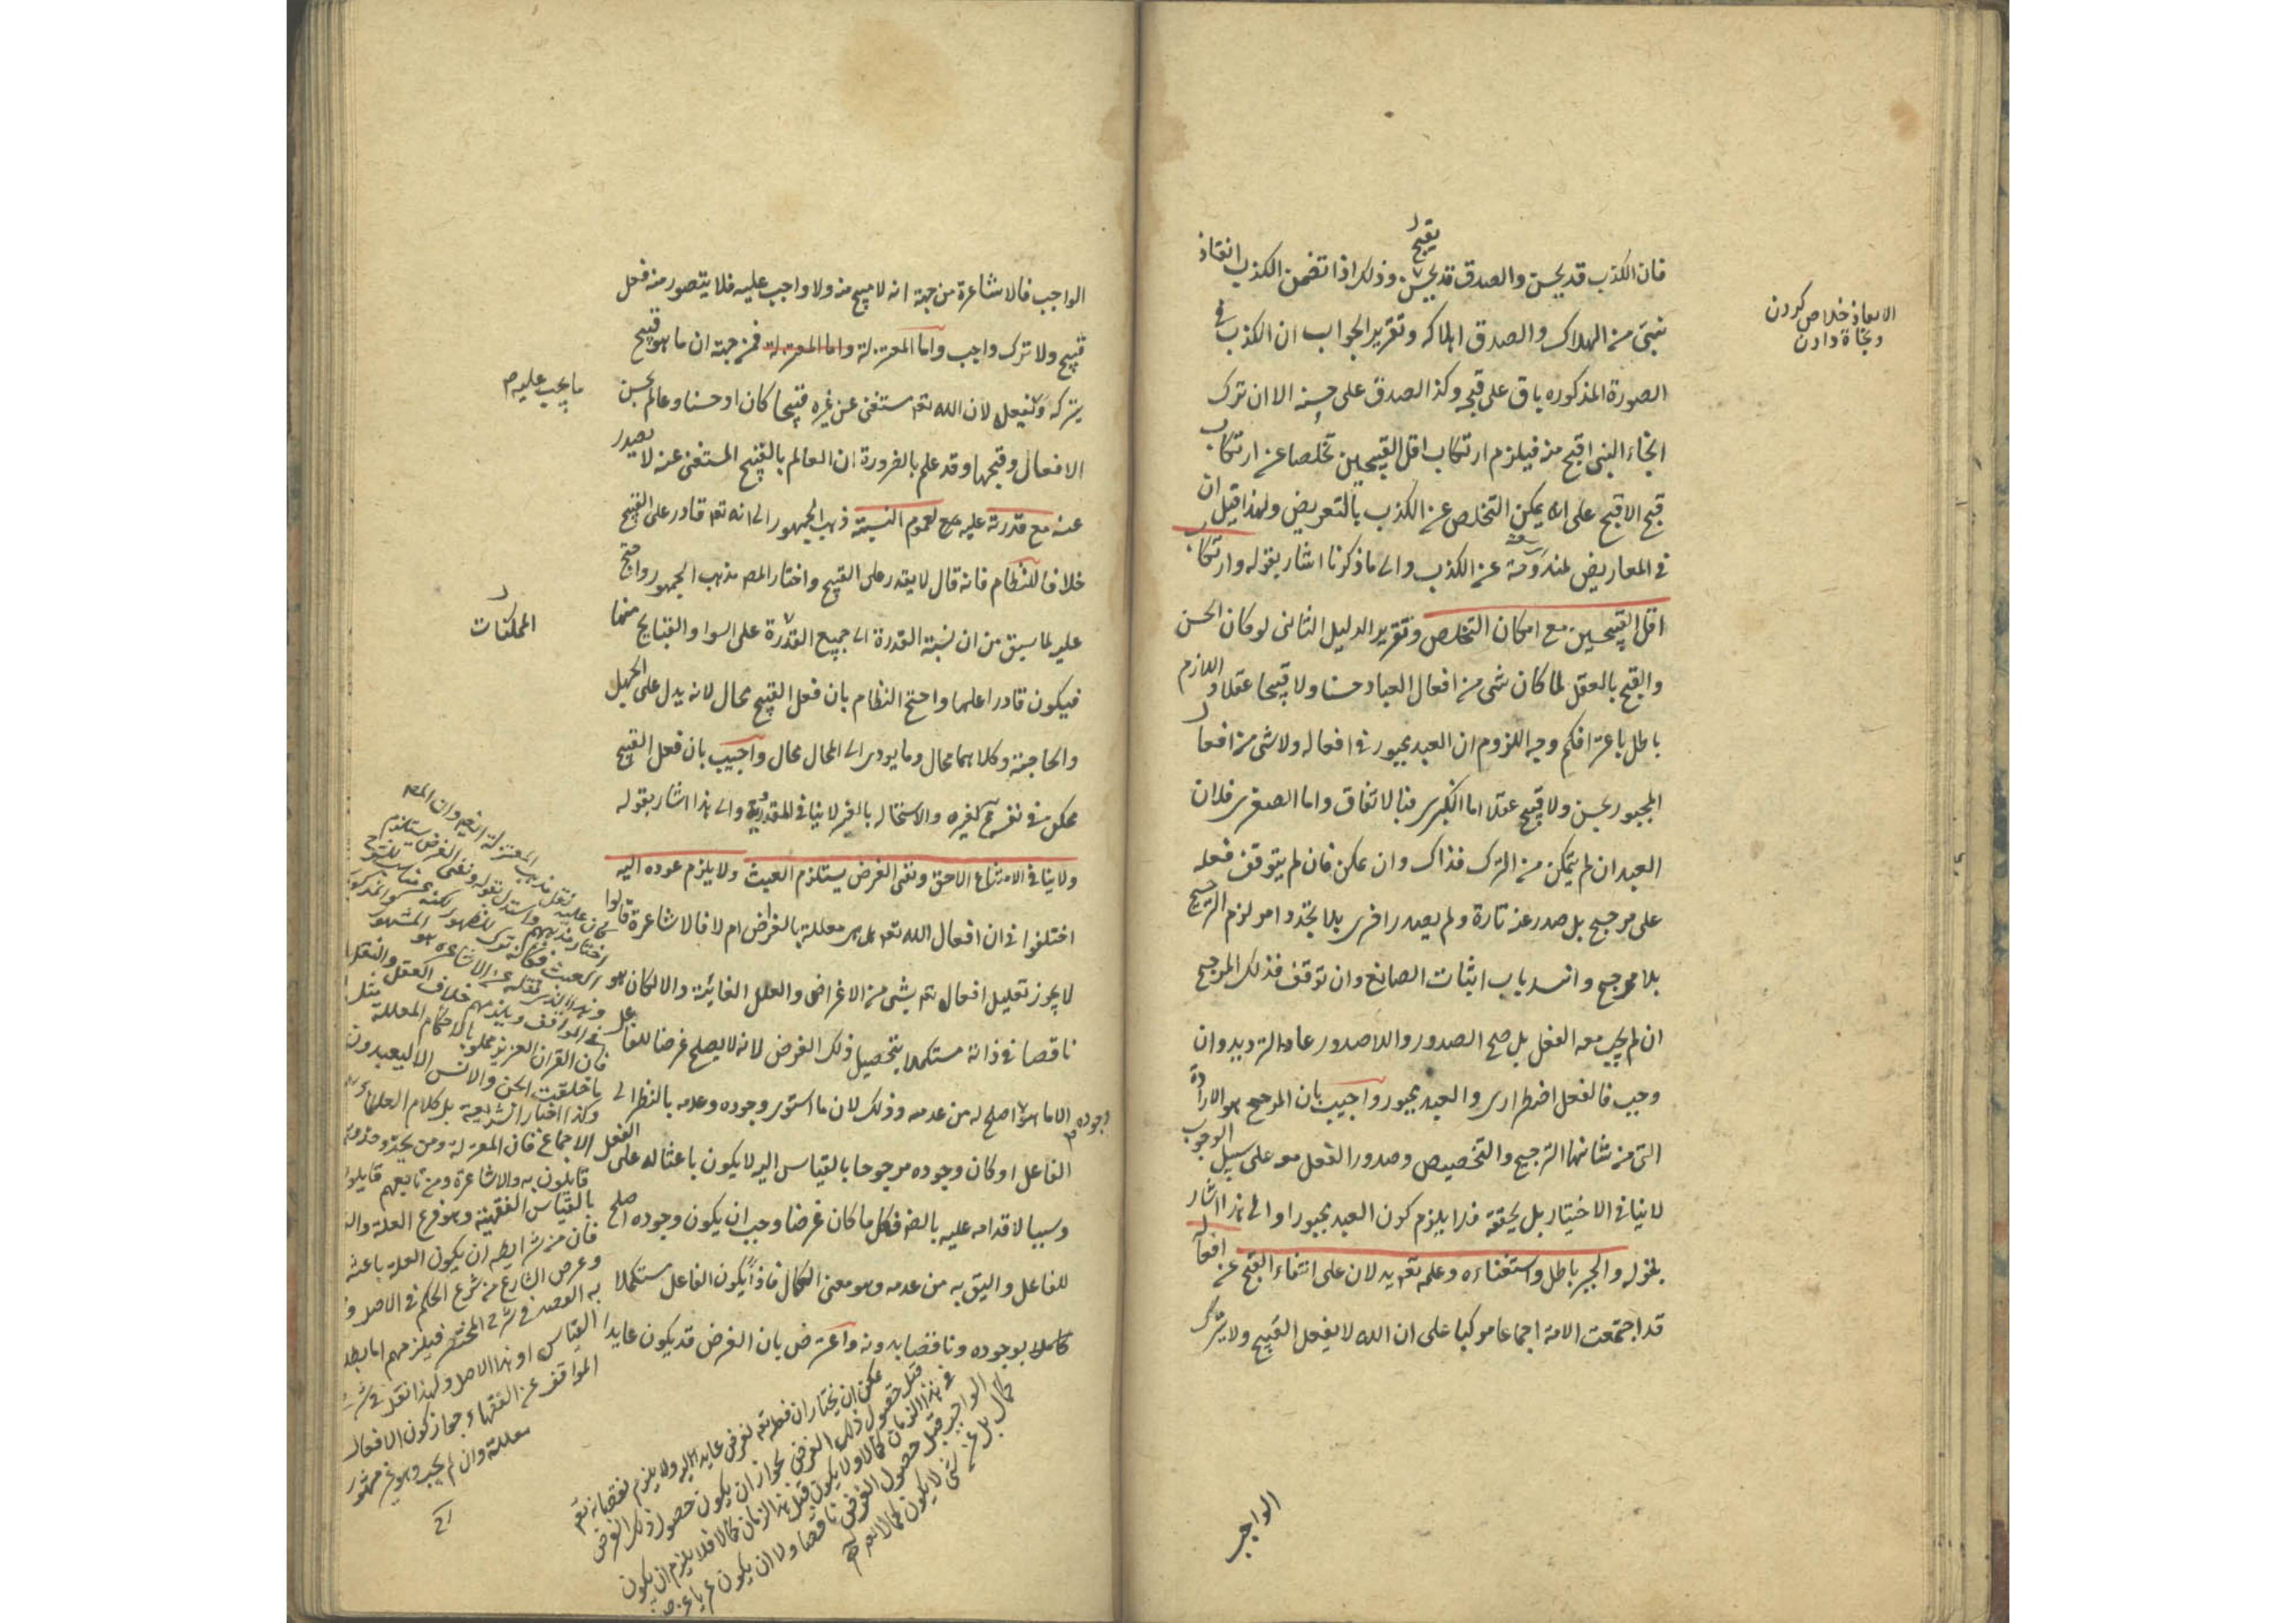 فان الكذب قد يحسن والصدق قد يحسن وذلك اذا تضمن الكذب انقاذ
يقبح
نبى من الهلاك والصدق اهلاكه وتقرير الجواب ان الكذب فى
الصورة المذكوره باق على قبحه وكذا الصدق على حسنه الا ان ترك
انجاء النبى اقبح منه فيلزم ارتكاب اقل القبيحين تخلصا عن ارتكاب
قبح الاقبح على انه يمكن التخلص عن الكذب بالتعريض ولهذا قيل ان
فى المعاريض لمندوحة عن الكذب والى ما ذكرنا اشار بقوله وارتكاب
اقل القبيحين مع امكان التخلص وتقرير الدليل الثانى لو كان الحسن
والقبح بالعقل لما كان شى من افعال العباد حسنا ولا قبيحا عقلا واللازم
باطل باعترافكم وجه اللزوم ان العبد مجبور فى افعاله ولا شى من افعال
المجبور بحسن ولا قبيح عقلا اما الكبرى فبالاتفاق واما الصغرى فلان
العبد ان لم يتمكن من الترك فذاك وان تمكن فان لم يتوقف فعله
على مرجح بل صدر عنه تارة ولم يصدر اخرى بلا تجدد امر لزم الترجيح
بلا مرجح وانسد باب اثبات الصانع وان توقف فذلك المرجح
ان لم يجب معه الفعل بل صح الصدور واللاصدور عاد الترديد وان
وجب فالفعل اضطرارى والعبد مجبور واجيب بان المرجح هو الارادة
التى من شانها الترجيح والتخصيص وصدور الفعل معه على سبيل الوجوب
لا ينافى الاختيار بل يحققه فلا يلزم كون العبد مجبورا والى هذا اشار
بقوله والجبر باطل واستغناءه وعلمه تعه يدلان على انتفاء القبح عن افعاله
قد اجتمعت الامة اجماعا مركبا على ان الله لا يفعل القبيح ولا يترك
الواجب
الانقاذ خلاص كردن
ونجاة دادن
الواجب فالاشاعرة من جهة انه لا قبيح منه ولا واجب عليه فلا يتصور منه فعل
قبيح ولا ترك واجب واما المعتزلة واما المعتزلة فمن جهة ان ما هو قبيح
يتركه ويفعل لان الله تعه مستغن عن غيره قبيحا كان او حسنا وعالم بحسن
ما يجب عليه
الافعال وقبحها وقد علم بالضرورة ان العالم بالقبيح المستغنى عنه لا يصدر
عنه مع قدرته عليه لعموم النسبة ذهب الجمهور الى انه تعه قادر على القبيح
خلافا للنظام فانه قال لا يقدر على القبيح واختار المص مذهب الجمهور واحتج
عليه لما سبق من ان نسبة القدرة الى جميع القدرة على السوا والقبايح منها
الممكنات
فيكون قادرا عليها واحتج النظام بان فعل القبيح محال لانه يدل على الجهل
والحاجة وكلاهما محال وما يودى الى المحال محال واجيب بان فعل القبيح
ممكن فى نفسه لغيره والاستحاله بالغير لا ينافى المقدورية والى هذا اشار بقوله
ولا ينافى الامتناع اللاحق ونفى الغرض يستلزم العبث ولا يلزم عوده اليه
اختلفوا فى ان افعال الله تعه هل هى معللة بالغراض ام لا فالاشاعرة قالوا
لا يجوز تعليل افعاله تعه بشى من الاغراض والعلل الغائية والا لكان هو
ناقصا فى ذاته مستكملا بتحصيل ذلك الغرض لانه لا يصلح غرضا للفاعل
الا ما هو اصلح له من عدمه وذلك لان ما استوى وجوده وعدمه بالنظر الى
وجوده
الفاعل او كان وجوده مرجوحا بالقياس اليه لا يكون باعثا له على الفعل
وسببا لاقدامه عليه بالضه فكل ما كان غرضا وجب ان يكون وجوده اصلح
للفاعل واليق به من عدمه وهو معنى الكمال فاذا يكون الفاعل مستكملا
كاملا بوجوده وناقصا بدونه واعترض بان الغرض قد يكون عايدا
فان القرآن العزيز مملو بالاحكام المعللة
ما خلقت الجن والانس الا ليعبدون
الاجماع فان المعتزلة ومن
قايلون به والاشاعرة ومن تابعهم قايلون
بالقياس الفقهية وهو فرع العلة
فان من شرايطه ان يكون العلة باعثه
وغرض الشارع من شرع الحكم فى الاصل
القياس او هذا الاصل ولهذا نقل فى
المواقف عن الفقهاء جواز كون الافعال
معللة وان لم يجب وهو غير مشهور
يمكن ان يختار ان فعله تعه لغرض عايد اليه ولا يلزم نقصانه تعه
قبل حصول ذلك الغرض لجواز ان يكون حصول ذلك الغرض
فى هذا الزمان كمالا ولا يكون قبل هذا الزمان كمالا فلا يلزم ان يكون
الواجب قبل حصول الغرض ناقصا ولا ان يكون عريا عن
كمال بل عن شى لا يكون كمالا